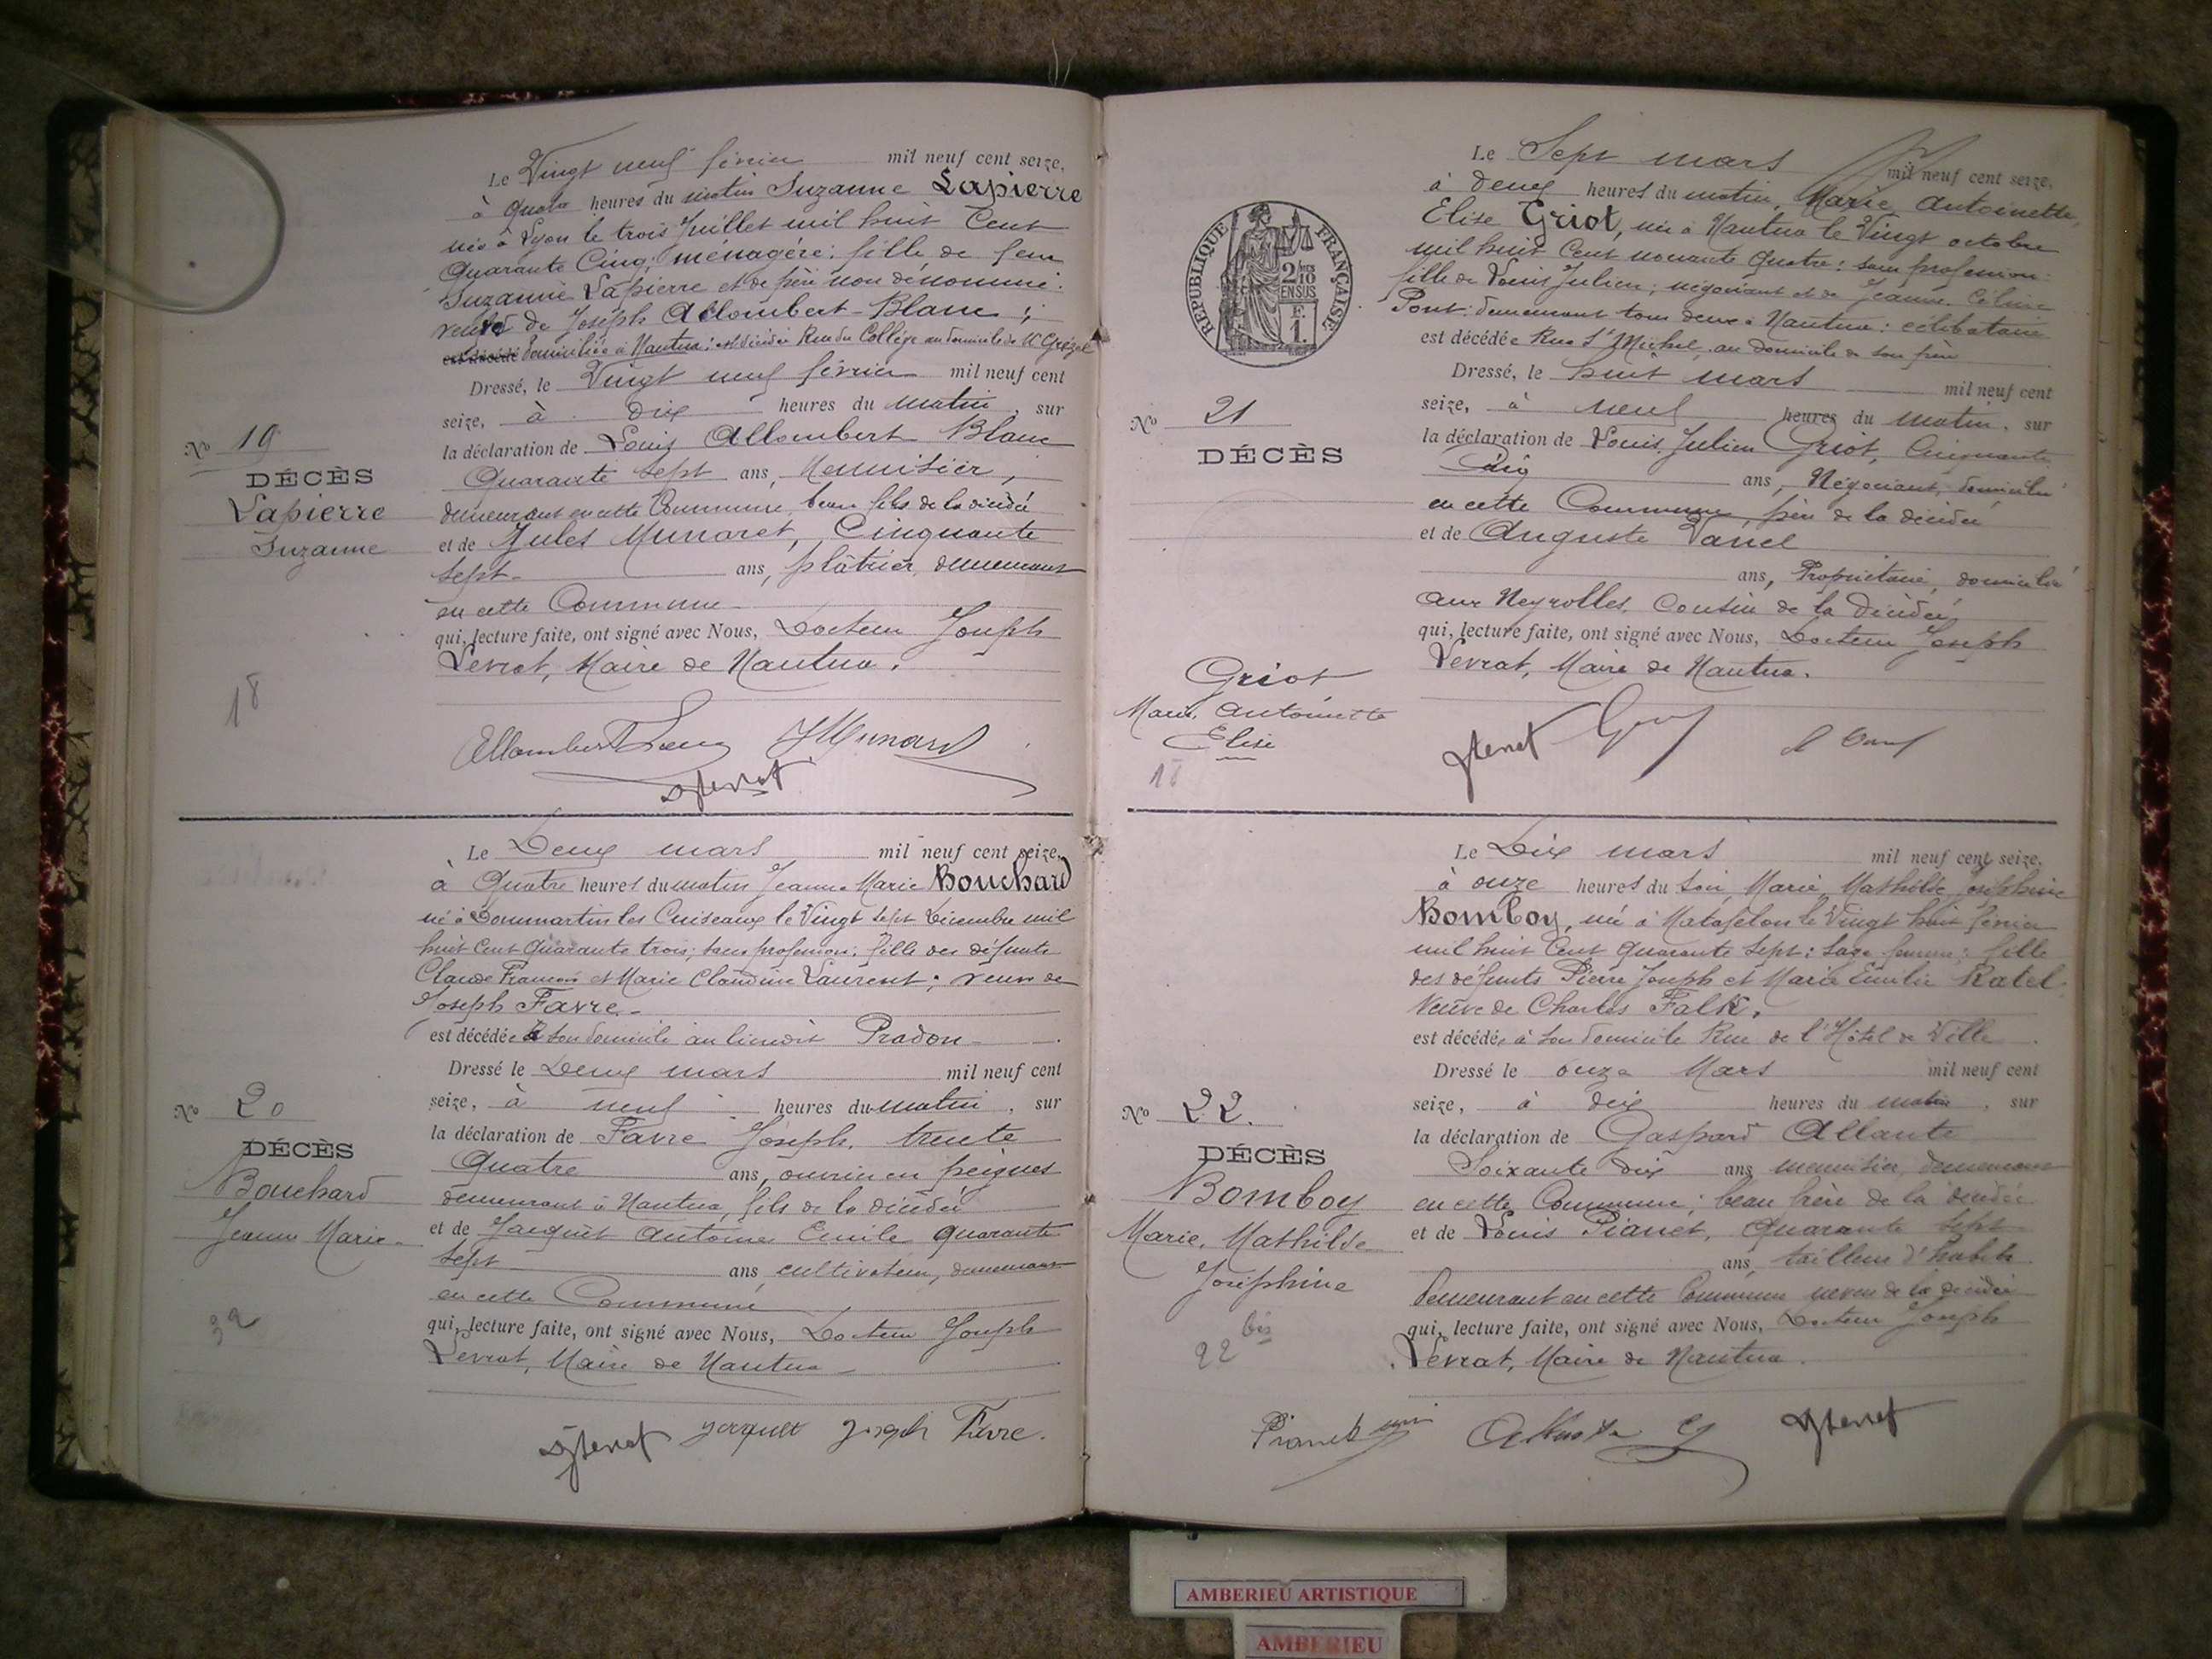 Le Vingt neuf février mil neuf cent seize,
à quatre heures du matin Suzanne Lapierre
née à Lyon le trois Juillet mil huit Cent
Quarante Cinq; ménagère; fille de feue
Suzanne Lapierre et de père non dénommé.
veuve de Joseph Allombert-Blanc;
domiciliée à Nantua; est décédée Rue du Collège au domicile de
Dressé, le Vingt neuf février mil neuf cent
seize, à dix heures du matin, sur
la déclaration de Louis Allombert Blanc
Quarante Sept ans, Menuisier,
demeurant en cette Commune, beau fils de la décédée
et de Jules Munaret, Cinquante
sept ans, plâtrier, demeurant
en cette Commune
qui, lecture faite, ont signé avec Nous, Docteur Joseph
Levrat, Maire de Nantua.
No 19
DÉCÈS
Lapierre
Suzanne
18
Le Deux mars mil neuf cent seize,
à Quatre heures du matin Jeanne Marie Bouchard
née à Dommartin les Cuiseaux le Vingt sept Décembre mil
huit Cent Quarante trois; sans profession; fille des défunts
Claude François et Marie Claudine Laurent; veuve de
Joseph Favre.
est décédée à son domicile au lieudit Pradon
Dressé le Deux mars mil neuf cent
seize, à neuf heures du matin, sur
la déclaration de Favre Joseph, trente
Quatre ans, ouvrier en peignes
demeurant à Nantua, fils de la décédée
et de Jacquet Antoine Emile quarante
sept ans, cultivateur, demeurant
en cette Commune
qui, lecture faite, ont signé avec Nous, Docteur Joseph
Levrat, Maire de Nantua
Joseph Favre.
No 20
DÉCÈS
Bouchard
Jeanne Marie
32
Le Sept mars mil neuf cent seize,
à deux heures du matin, Marie Antoinette,
Elise Griot, née à Nantua le Vingt octobre
mil huit Cent nonante Quatre; sans profession;
fille de Louis Julien; négociant et de Jeanne Céline
Pont; demeurant tous deux à Nantua; célibataire
est décédée Rue St Michel, au domicile de son père
Dressé, le huit mars mil neuf cent
seize, à neuf heures du matin, sur
la déclaration de Louis Julien Griot, Cinquante
Cinq ans, Négociant, domicilié
en cette Commune, père de la décédée
et de Auguste Vanel
ans, Propriétaire, domicilié
aux Neyrolles, Cousin de la décédée
qui, lecture faite, ont signé avec Nous, Docteur Joseph
Levrat, Maire de Nantua.
RÉPUBLIQUE FRANÇAISE
2/10
EN SUS
F.
1.
No 21
DÉCÈS
Griot
Marie, Antoinette
Elise
Le Dix mars mil neuf cent seize,
à onze heures du soir, Marie, Mathilde Joséphine
Bomboy, née à Matafelon le Vingt huit février
mil huit Cent Quarante Sept; Sage femme; fille
des défunts Pierre Joseph et Marie Emilie Ratel
Veuve de Charles Falk.
est décédée à son domicile Rue de l'Hôtel de Ville
Dressé le onze Mars mil neuf cent
seize, à dix heures du matin, sur
la déclaration de Gaspard Allante
Soixante dix ans menuisier, demeurant
en cette Commune; beau frère de la décédée
et de Louis Pianet, Quarante Sept
ans, tailleur d'habits
demeurant en cette Commune neveu de la décédée
qui, lecture faite, ont signé avec Nous, Docteur Joseph
Levrat, Maire de Nantua.
Pianet
No 22.
DÉCÈS
Bomboy
Marie, Mathilde
Joséphine
22 bis
AMBERIEU ARTISTIQUE
AMBERIEU